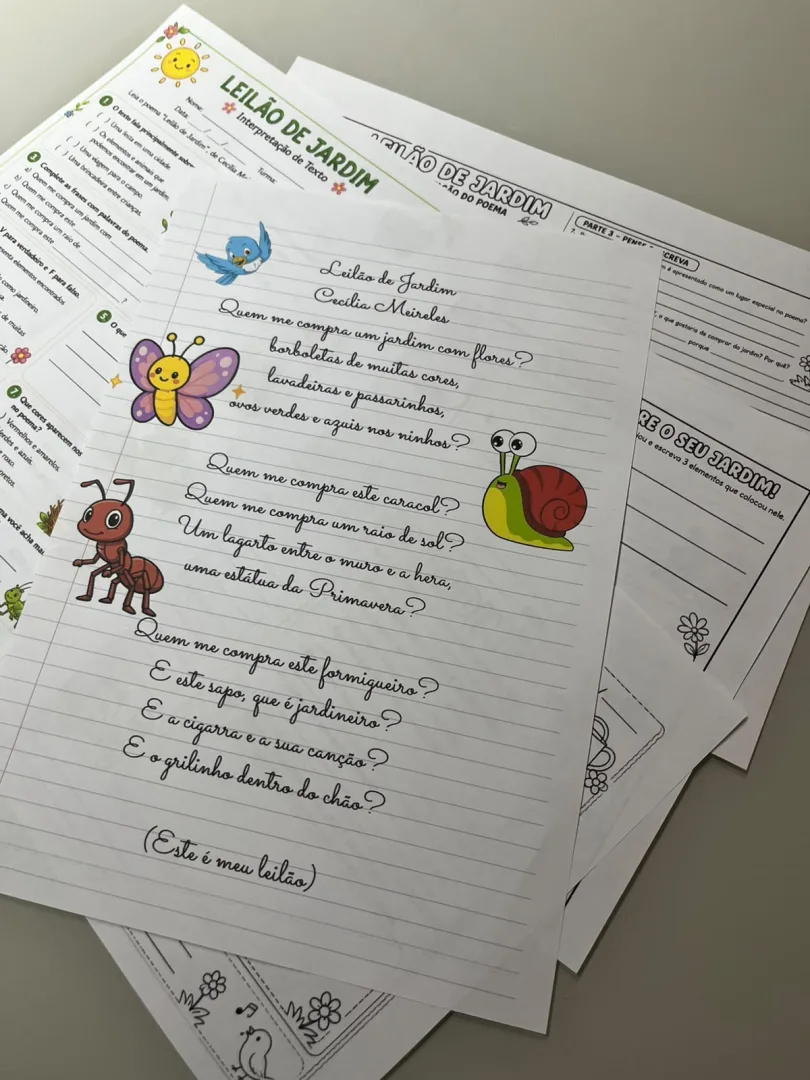 LEILÃO DE JARDIM
Interpretação de Texto
Nome:
Data:
Turma:
Leia o poema "Leilão de Jardim", de Cecília
1 O texto fala principalmente sobre:
( ) Uma festa em uma cidade.
( ) Os elementos e animais que
podemos encontrar em um jardim.
( ) Uma viagem para o campo.
( ) Uma brincadeira entre crianças.
Complete as frases com palavras do poema
a) Quem me compra um jardim com
b) Quem me compra este
c) Quem me compra um raio de
Quem me compra este
?
V para verdadeiro e F para falso.
elementos encontrados
como jardineiro.
de muitas
5 O que
7 Que cores aparecem nos
no poema?
Vermelhos e amarelos.
verdes e azuis.
e roxo.
pretos.
você acha
LEILÃO DE JARDIM
DO POEMA
PARTE 3 -
é apresentado como um lugar especial no poema?
o que gostaria de comprar do jardim? Por quê?
porque
O SEU JARDIM!
e escreva 3 elementos que colocou nele.
Leilão de Jardim
Cecília Meireles
Quem me compra um jardim com flores?
borboletas de muitas cores,
lavadeiras e passarinhos,
ovos verdes e azuis nos ninhos?
Quem me compra este caracol?
Quem me compra um raio de sol?
Um lagarto entre o muro e a hera,
uma estátua da Primavera?
Quem me compra este formigueiro?
E este sapo, que é jardineiro?
E a cigarra e a sua canção?
E o grilinho dentro do chão?
(Este é meu leilão)